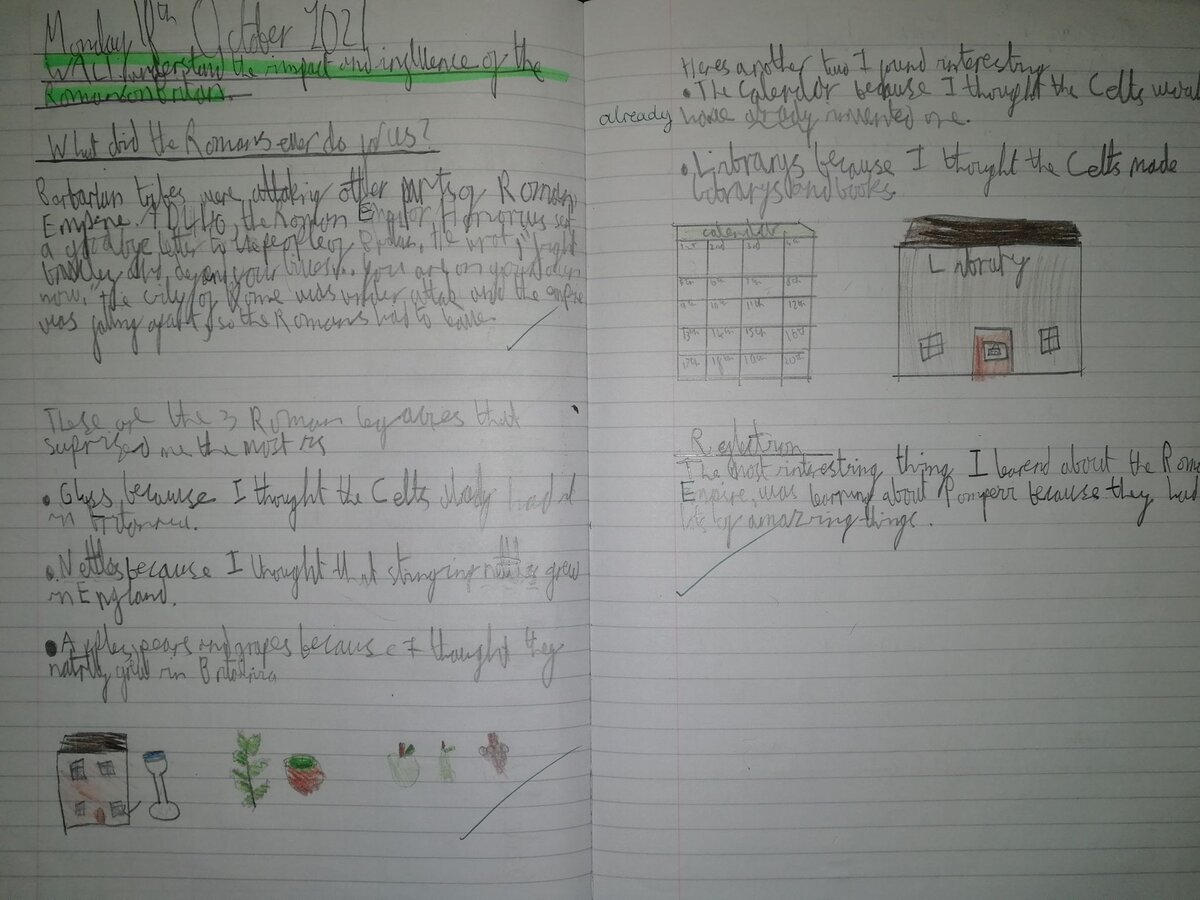 Monday 18th October 2021
WALI understand the impact and influence of the
Romans on Britain.
What did the Romans ever do for us?
Barbarian tribes were attaking other parts of Roman
Empire. AD410, the Roman Emperor Honorius set
a goodbye letter to the people of Britain, He wrote, "fight
bravley and defend your lives... You are on your own
now," the city of Rome was under attak and the empire
was falling apart, so the Romans had to leave.
These are the 3 Roman legacies that
suprised me the most is
• Glass, because I thought the Celts had it
in
• Nettles because I thought that stinging grew
in England.
• Apples, pears and grapes because I thought they
grew in
Heres another two I found interesting
• The calendar because I thought the Celts would
already have invented one.
• Librarys because I thought the Celts made
librarys and books.
calendar
1st 2nd 3rd 4th
5th 6th 7th 8th
9th 10th 11th 12th
13th 14th 15th 16th
17th 18th 19th 20th
Library
Reflection
The most interesting thing I learend about the Roma
Empire was learning about Pompeii because they had
lots of amazing things.